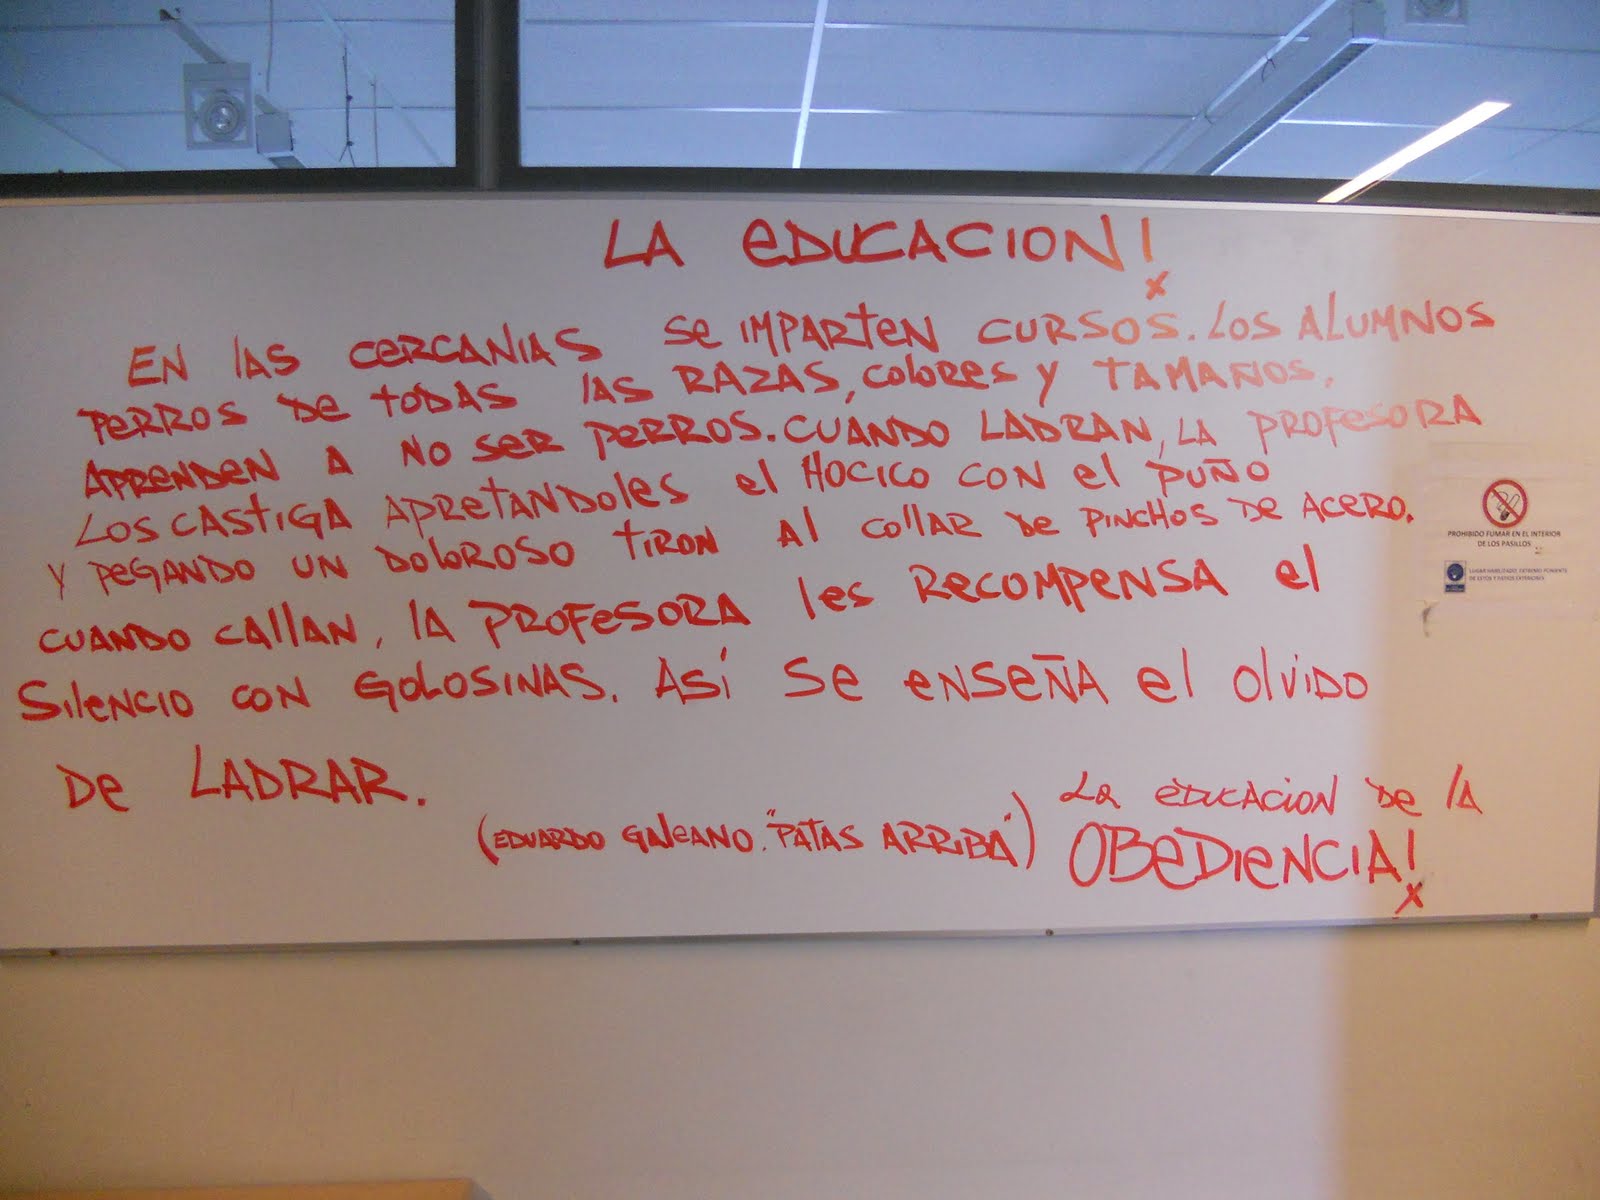 LA EDUCACION!
EN LAS CERCANIAS SE IMPARTEN CURSOS. LOS ALUMNOS
PERROS DE TODAS LAS RAZAS, COLORES Y TAMAÑOS,
APRENDEN A NO SER PERROS. CUANDO LADRAN, LA PROFESORA
LOS CASTIGA APRETANDOLES EL HOCICO CON EL PUÑO
Y PEGANDO UN DOLOROSO TIRON AL COLLAR DE PINCHOS DE ACERO.
CUANDO CALLAN, LA PROFESORA LES RECOMPENSA EL
SILENCIO CON GOLOSINAS. ASÍ SE ENSEÑA EL OLVIDO
DE LADRAR.
(EDUARDO GALEANO. "PATAS ARRIBA")
LA EDUCACION DE LA
OBEDIENCIA!
PROHIBIDO FUMAR EN EL INTERIOR
DE LOS PASILLOS
LUGAR HABILITADO: EXTREMO PONIENTE
DE ESTOS Y PATIOS EXTERIORES